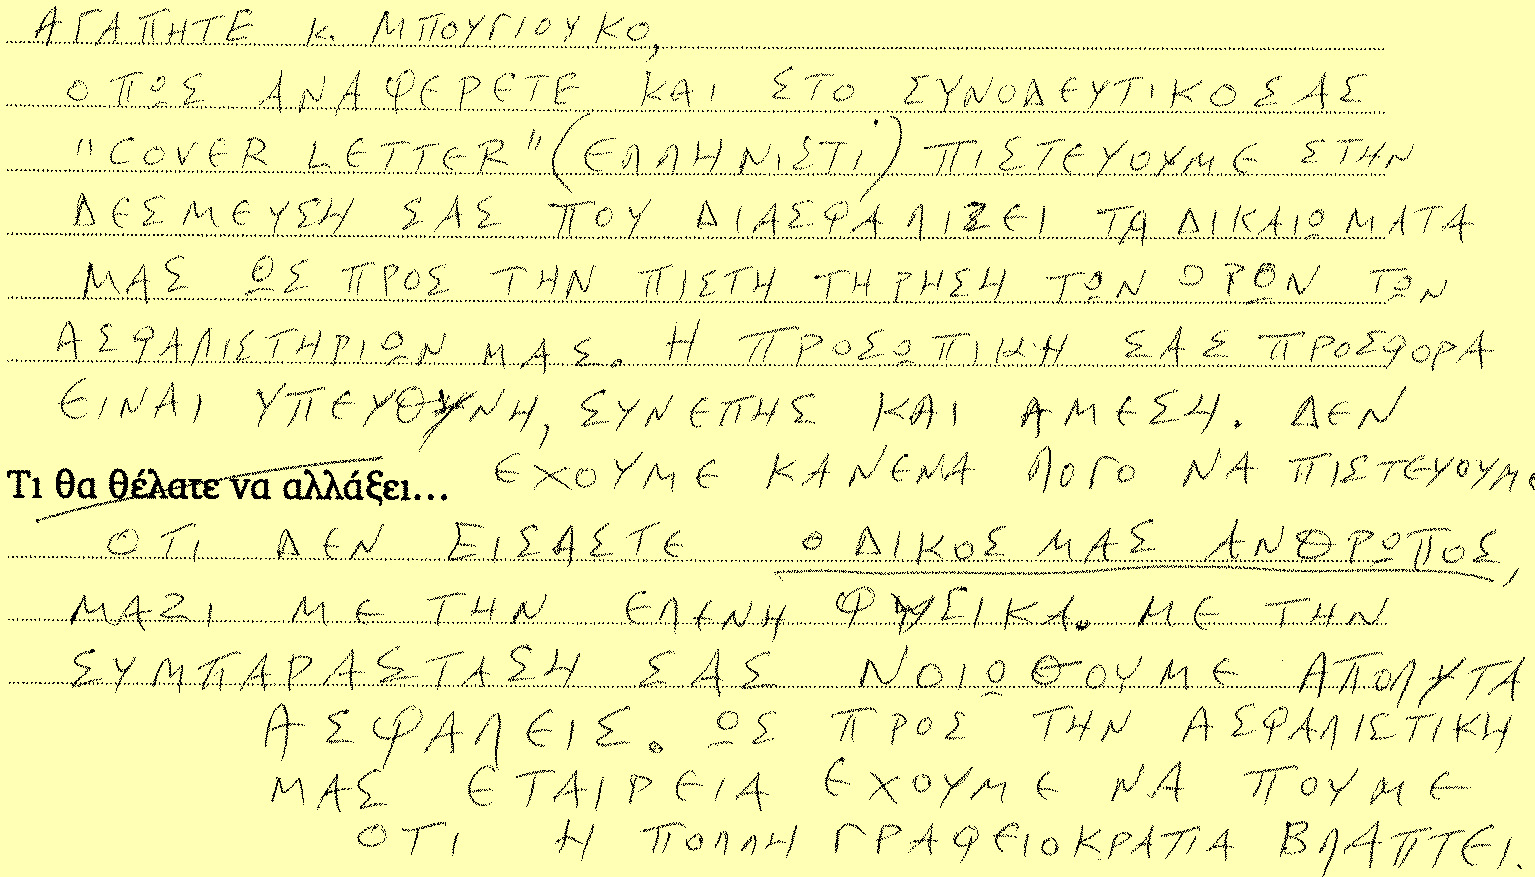 ΑΓΑΠΗΤΕ κ. ΜΠΟΥΓΙΟΥΚΟ,
ΟΠΩΣ ΑΝΑΦΕΡΕΤΕ ΚΑΙ ΣΤΟ ΣΥΝΟΔΕΥΤΙΚΟ ΣΑΣ
"COVER LETTER" (ΕΛΛΗΝΙΣΤΙ) ΠΙΣΤΕΥΟΥΜΕ ΣΤΗΝ
ΔΕΣΜΕΥΣΗ ΣΑΣ ΠΟΥ ΔΙΑΣΦΑΛΙΖΕΙ ΤΑ ΔΙΚΑΙΩΜΑΤΑ
ΜΑΣ ΩΣ ΠΡΟΣ ΤΗΝ ΠΙΣΤΗ ΤΗΡΗΣΗ ΤΩΝ ΟΡΩΝ ΤΩΝ
ΑΣΦΑΛΙΣΤΗΡΙΩΝ ΜΑΣ. Η ΠΡΟΣΩΠΙΚΗ ΣΑΣ ΠΡΟΣΦΟΡΑ
ΕΙΝΑΙ ΥΠΕΥΘΥΝΗ, ΣΥΝΕΠΗΣ ΚΑΙ ΑΜΕΣΗ. ΔΕΝ
Τι θα θέλατε να αλλάξει... ΕΧΟΥΜΕ ΚΑΝΕΝΑ ΛΟΓΟ ΝΑ ΠΙΣΤΕΥΟΥΜΕ
ΟΤΙ ΔΕΝ ΕΙΣΑΣΤΕ Ο ΔΙΚΟΣ ΜΑΣ ΑΝΘΡΩΠΟΣ,
ΜΑΖΙ ΜΕ ΤΗΝ ΕΛΕΝΗ ΦΥΣΙΚΑ. ΜΕ ΤΗΝ
ΣΥΜΠΑΡΑΣΤΑΣΗ ΣΑΣ ΝΟΙΩΘΟΥΜΕ ΑΠΟΛΥΤΑ
ΑΣΦΑΛΕΙΣ. ΩΣ ΠΡΟΣ ΤΗΝ ΑΣΦΑΛΙΣΤΙΚΗ
ΜΑΣ ΕΤΑΙΡΕΙΑ ΕΧΟΥΜΕ ΝΑ ΠΟΥΜΕ
ΟΤΙ Η ΠΟΛΛΗ ΓΡΑΦΕΙΟΚΡΑΤΙΑ ΒΛΑΠΤΕΙ.